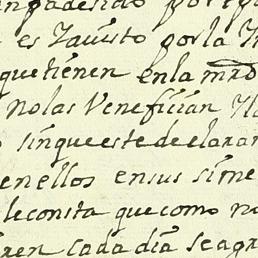 es Zauisto por la
que tienen en la mrd
no las Venefician
sin que este declaran
en ellos en sus sime
le consta que como no
en cada dia se agr